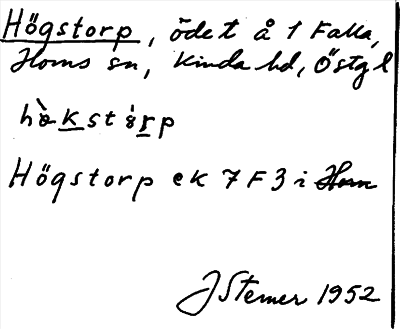 Högstorp, ödet å 1 Falla,
Horns sn, Kinda hd, Östg l
Högstorp ek 7 F 3 i Horn
J Sterner 1952